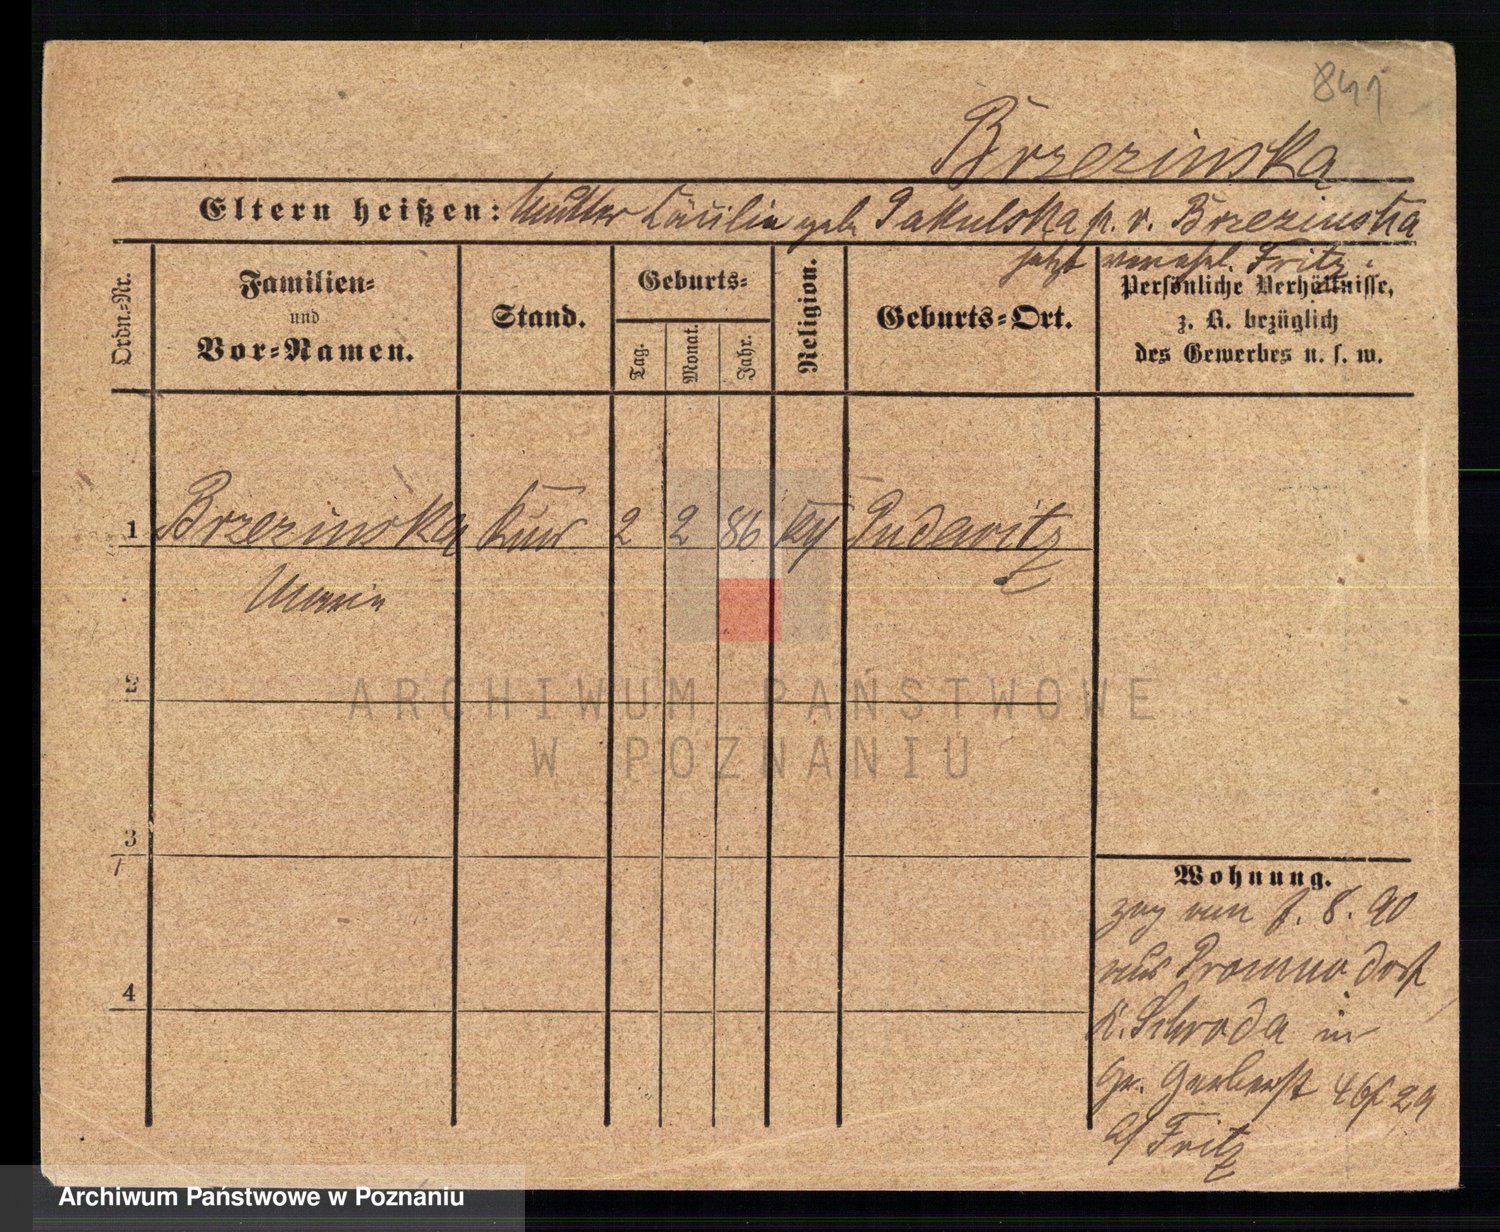 841
Brzezinska
Eltern heißen: Mutter Cäcilia geb. Jakulska p. v. Brzezinska
jetzt verehel. Fritz.
Ordn.-Nr.
Familien-
und
Vor-Namen.
Stand.
Geburts-
Tag.
Monat.
Jahr.
Religion.
Geburts-Ort.
Persönliche Verhältnisse,
z. B. bezüglich
des Gewerbes u. s. w.
1 Brzezinska 2 2 86 Pudewitz
Maria
2
ARCHIWUM PAŃSTWOWE
W POZNANIU
3
4
Wohnung.
zog am 8. 90
aus Promno Dorf
K. Schroda in
Gr. Gerberst
b/ Fritz
Archiwum Państwowe w Poznaniu